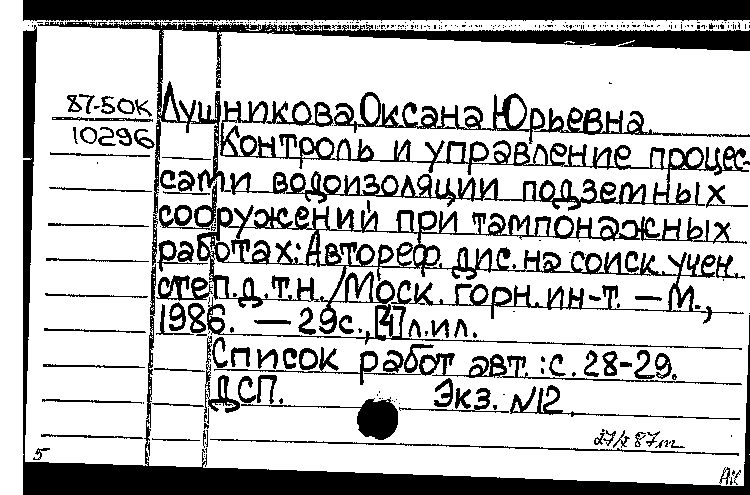 87-50К Лушникова, Оксана Юрьевна.
10296 Контроль и управление процес-
сами водоизоляции подземных
сооружений при тампонажных
работах: Автореф. дис. на соиск. учен.
степ. д.т.н. / Моск. горн. ин-т. — М.,
1986. — 29с., [4] л. ил.
Список работ авт.: с. 28-29.
ДСП. Экз. N12.
5
АК